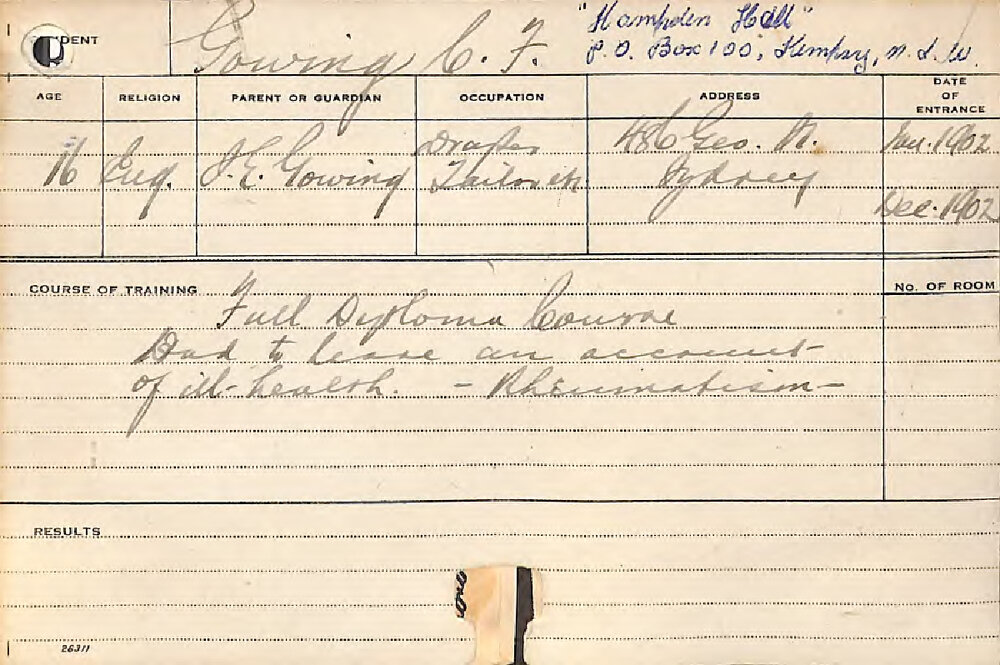 STUDENT Gowing C. F. "Hampden Hall"
P.O. Box 100, Kempsey, N.S.W.
AGE RELIGION PARENT OR GUARDIAN OCCUPATION ADDRESS DATE OF ENTRANCE
Draper 486 Geo. St. 1902
16 Eng. J. E. Gowing Sydney
Dec. 1902
COURSE OF TRAINING No. OF ROOM
Full Diploma Course
Had to leave on account
of ill-health. - Rheumatism -
RESULTS
26311